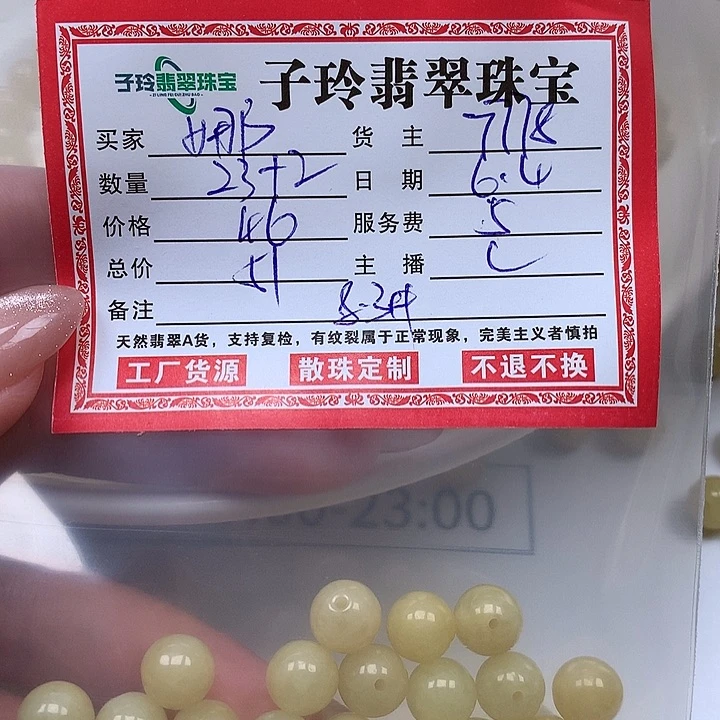 子玲翡翠珠宝 子玲翡翠珠宝
买家 娜 货主 7718
数量 23+2 日期 6.4
价格 46 服务费 5
总价 51 主播
备注
天然翡翠A货，支持复检，有纹裂属于正常现象，完美主义者慎拍
工厂货源 散珠定制 不退不换
0-23:00